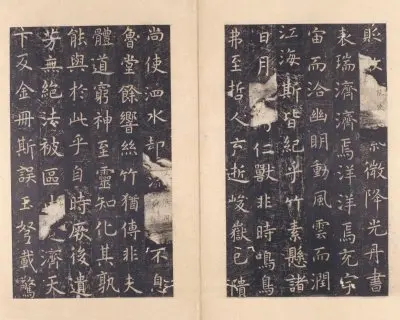 貶故微降光丹書
表瑞濟濟焉洋洋焉充宇
宙而洽幽明動風雲而潤
江海斯皆紀乎竹素懸諸
日月而仁獸非時鳴鳥
弗至哲人云逝峻嶽已隤
尚使泗水却不息
魯堂餘響絲竹猶傳非夫
體道窮神至靈知化其孰
能與於此乎自時厥後遺
芳無絕法被區濟天
下及金冊斯誤玉弩載驚